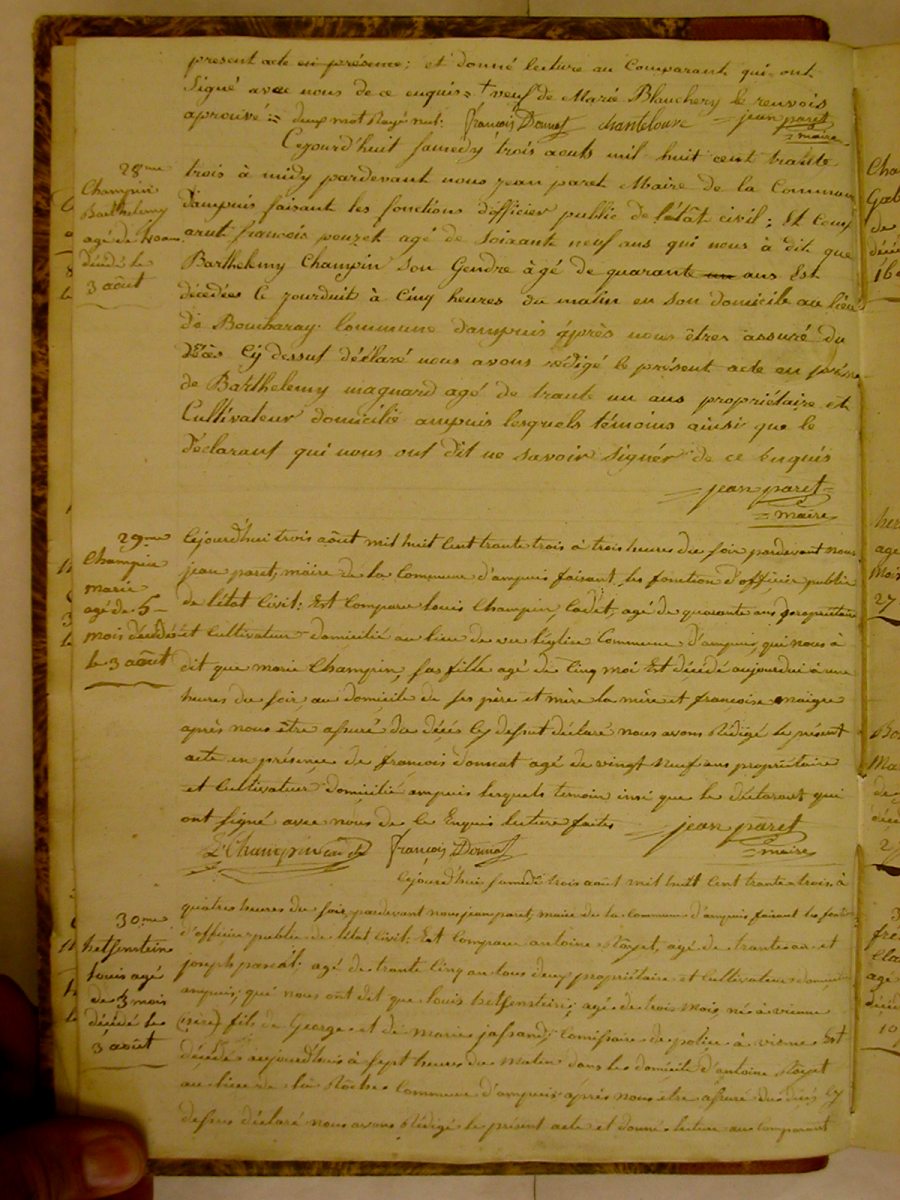 present acte en présence; et donné lecture au Comparant qui ont
Signé avec nous de ce enquis = + veuf de Marie Blanchery le renvois
aprouvé = deux mot Rayé nul. françois Donnat chanteloure jean paret
maire
28me
Champin
Barthelemy
agé de 40 ans
décédé le
3 août
Cejourd'huit samedy trois aouts mil huit cent trante
trois à midy pardevant nous jean paret Maire de la Commune
d'ampuis faisant les fonctions d'officier public de l'étât civil; Est Comp
arut françois pouzet agé de soixante neuf ans qui nous à dit que
Barthelemy Champin son Gendre âgé de quarante un ans Est
décédée Ce jourduit à Cinq heures du matin en son domicile au lieu
de Boucharay Commune dampuis après nous êtres assuré du
Décès Cÿ dessut déclaré nous avons rédigé le présent acte en présen
de Barthelemy magnard agé de trante un ans propriétaire et
Cultivateur domicilié ampuis lesquels témoins ainsi que le
Déclarant qui nous ont dit ne savoir signér de ce Enquis
jean paret
maire
29me
Champin
marie
agé de 5
mois décédé
le 3 août
Cejourd'hui trois août mil huit Cent trante trois à trois heures du soir pardevant nous
jean paret, maire de la Commune d'ampuis faisant les fonction d'officier public
de l'état Civil; Est Comparu louis Champin Cadet, agé de quarante ans propriétaire
et Cultivateur domicilié au lieu de vers l'église Commune d'ampuis, qui nous à
dit que marie Champin, sa fille agé de Cinq moi Est décédé aujourdui à une
heures du soir, au domicile de ses père et mère la mère et françoise maigre
après nous être assuré du décés Cy dessut déclaré nous avons Rédigé le présent
acte en présence de françois donnat agé de vingt neuf ans propriétaire
et Cultivateur domicilié ampuis lesquels temoin insi que le déclarant qui
ont signé avec nous de Ce Enquis lecture faites jean paret
L. Champin cadet françois Donnat maire
30me
hetsenstein
Louis agé
de 3 mois
décédé le
3 août
Cejourd'hui samedi trois août mil huit Cent trante trois à
quatres heures du soir, pardevant nous jean paret, maire de la commune d'ampuis faisant les fonct
d'officier public de l'état Civil; Est Comparu antoine Rozet, agé de trante et
joseph pascal; agé de trante Cinq an tous deux propriétaire et Cultivateur domicilié
ampuis; qui nous ont dit que louis hetsenstein; agé de trois mois né à vienne
(isère) fils de George et de marie jassand; Comissaire de police à vienne Est
décédé aujourd'hui à sept heures du Matin dans le domicile d'antoine Rozet
au lieu de la Roche Commune d'ampuis après nous etre assuré du décés Cy
dessus déclaré nous avons Rédigé le présent acte et donné lecture aux Comparant